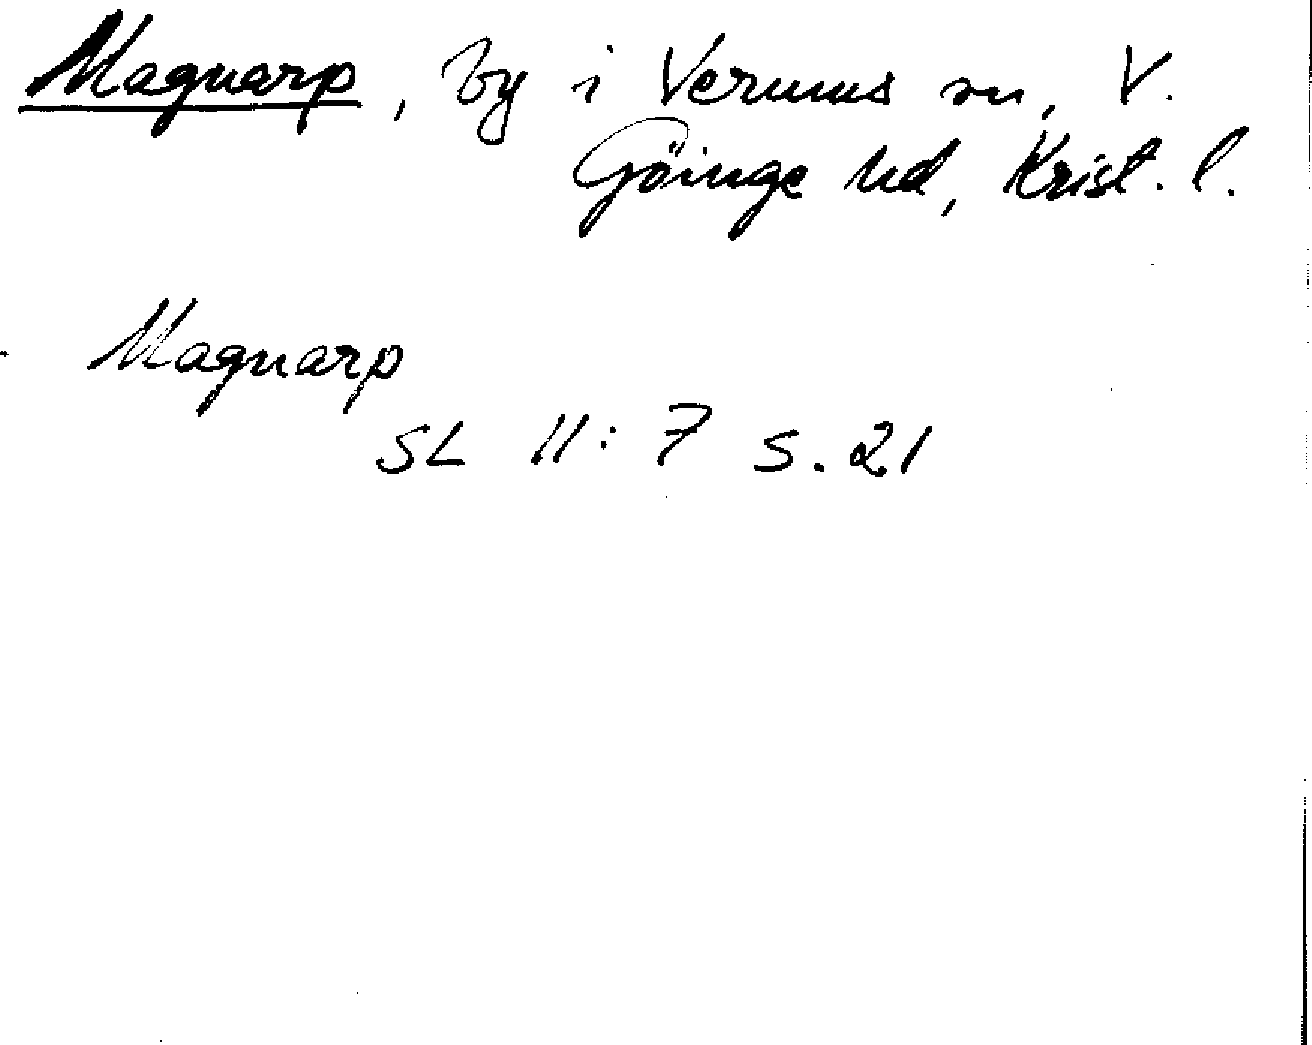 Magnarp, by i Verums sn, V.
Göinge hd, Krist. l.
Magnarp
SL 11:7 s. 21